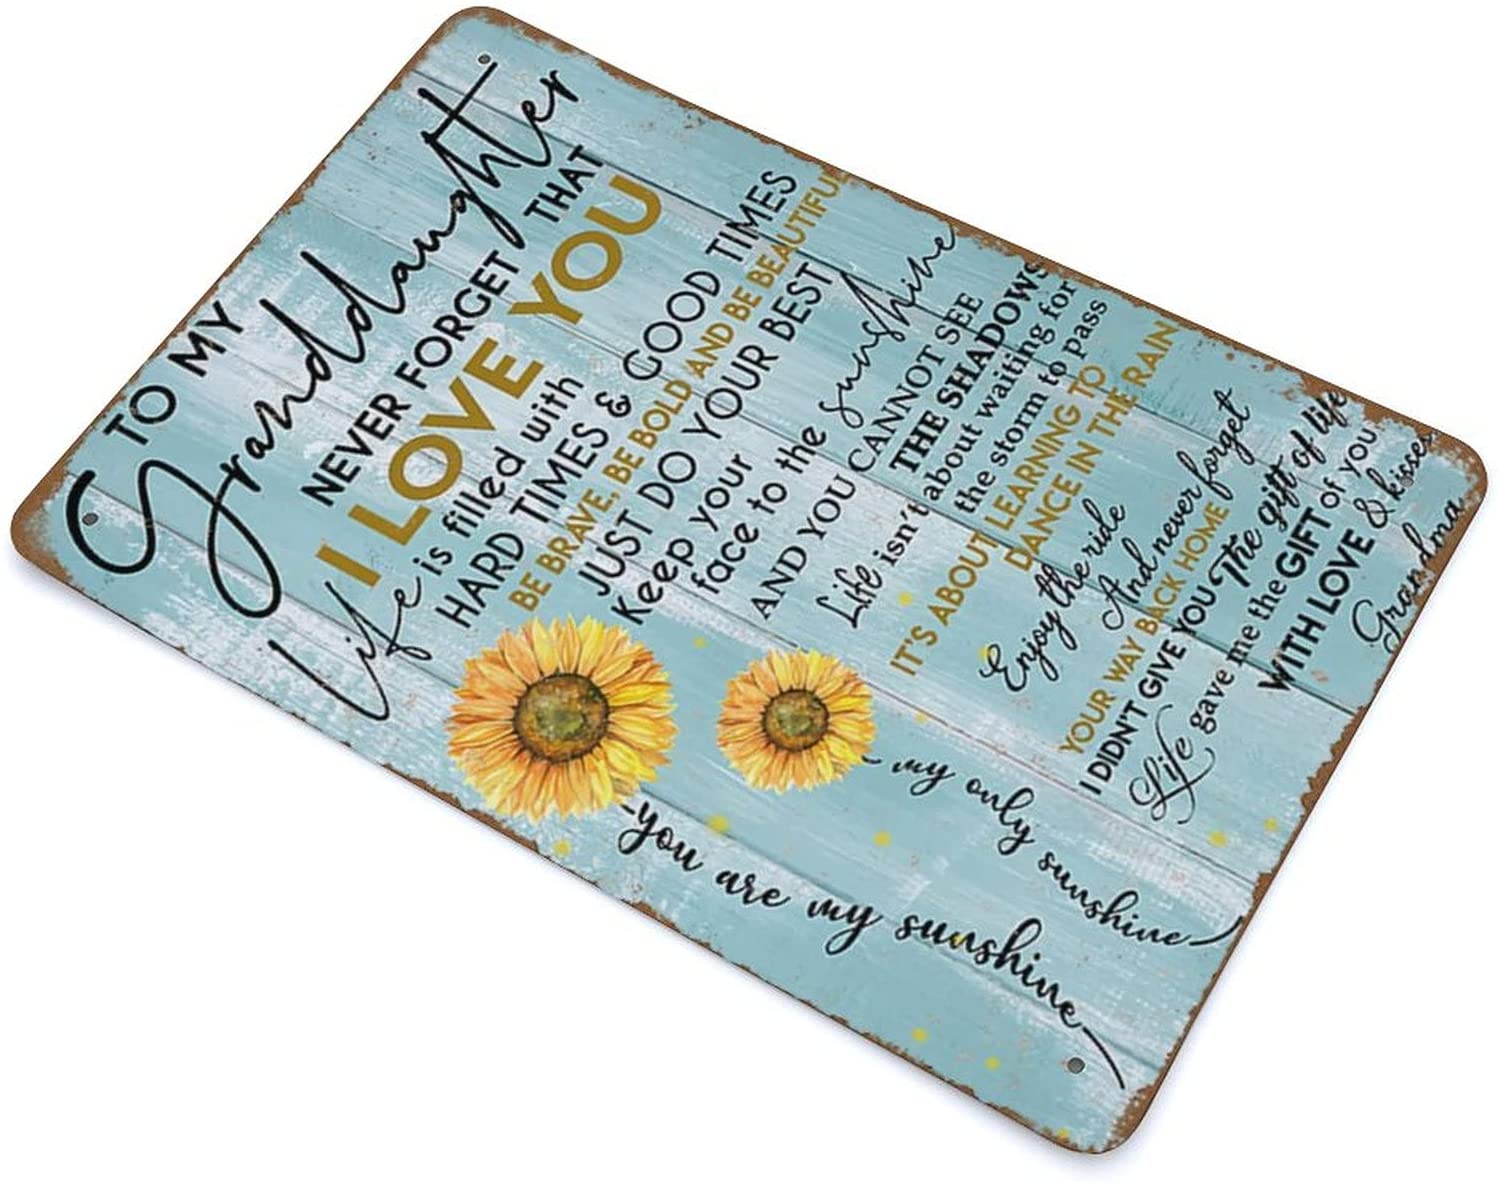 TO MY
Granddaughter
NEVER FORGET THAT
I LOVE YOU
Life is filled with
HARD TIMES & GOOD TIMES
BE BRAVE, BE BOLD AND BE BEAUTIFUL
JUST DO YOUR BEST
Keep your
face to the sunshine
AND YOU CANNOT SEE
THE SHADOWS
Life isn't about waiting for
the storm to pass
IT'S ABOUT LEARNING TO
DANCE IN THE RAIN
Enjoy the ride
And never forget
YOUR WAY BACK HOME
I DIDN'T GIVE YOU The gift of life
Life gave me the GIFT OF YOU
WITH LOVE & kisses
Grandma
my only sunshine
you are my sunshine